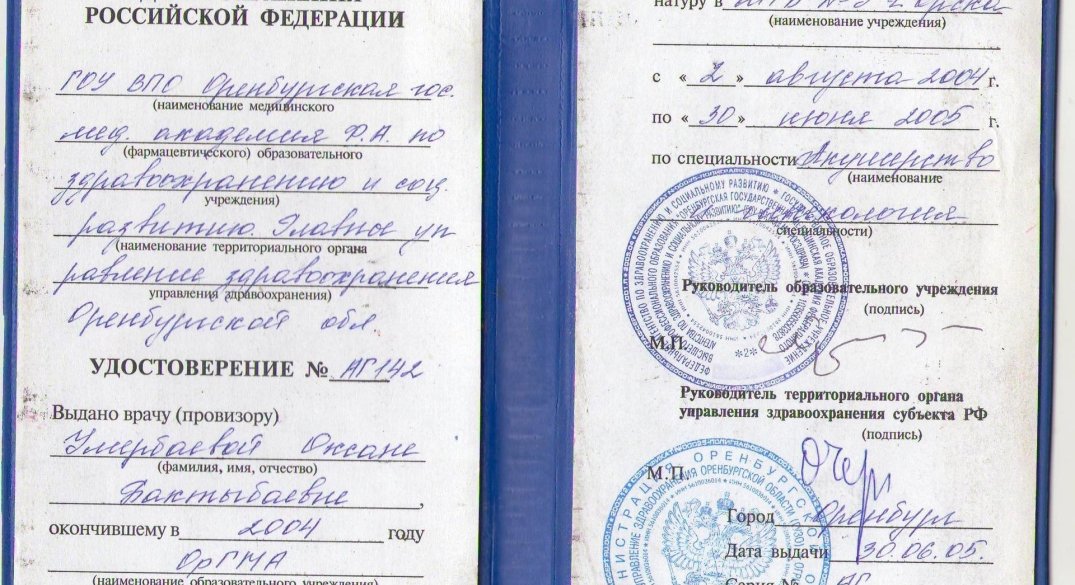 РОССИЙСКОЙ ФЕДЕРАЦИИ
ГОУ ВПО Оренбургская гос.
(наименование медицинского
мед. академия Ф.А. по
(фармацевтического) образовательного
здравоохранению и соц.
учреждения)
развитию. Главное уп
(наименование территориального органа
равление здравоохранения
управления здравоохранения)
Оренбургской обл.
УДОСТОВЕРЕНИЕ № АГ142
Выдано врачу (провизору)
Умербаевой Оксане
(фамилия, имя, отчество)
Бактыбаевне,
окончившему в 2004 году
ОрГМА
(наименование образовательного учреждения)
натуру в г. Орска
(наименование учреждения)
с «2» августа 2004 г.
по «30» июня 2005 г.
по специальности Акушерство
(наименование
гинекология
специальности)
Руководитель образовательного учреждения
(подпись)
М.П.
Руководитель территориального органа
управления здравоохранения субъекта РФ
(подпись)
М.П.
Город Оренбург
Дата выдачи 30.06.05.
Серия № АГ